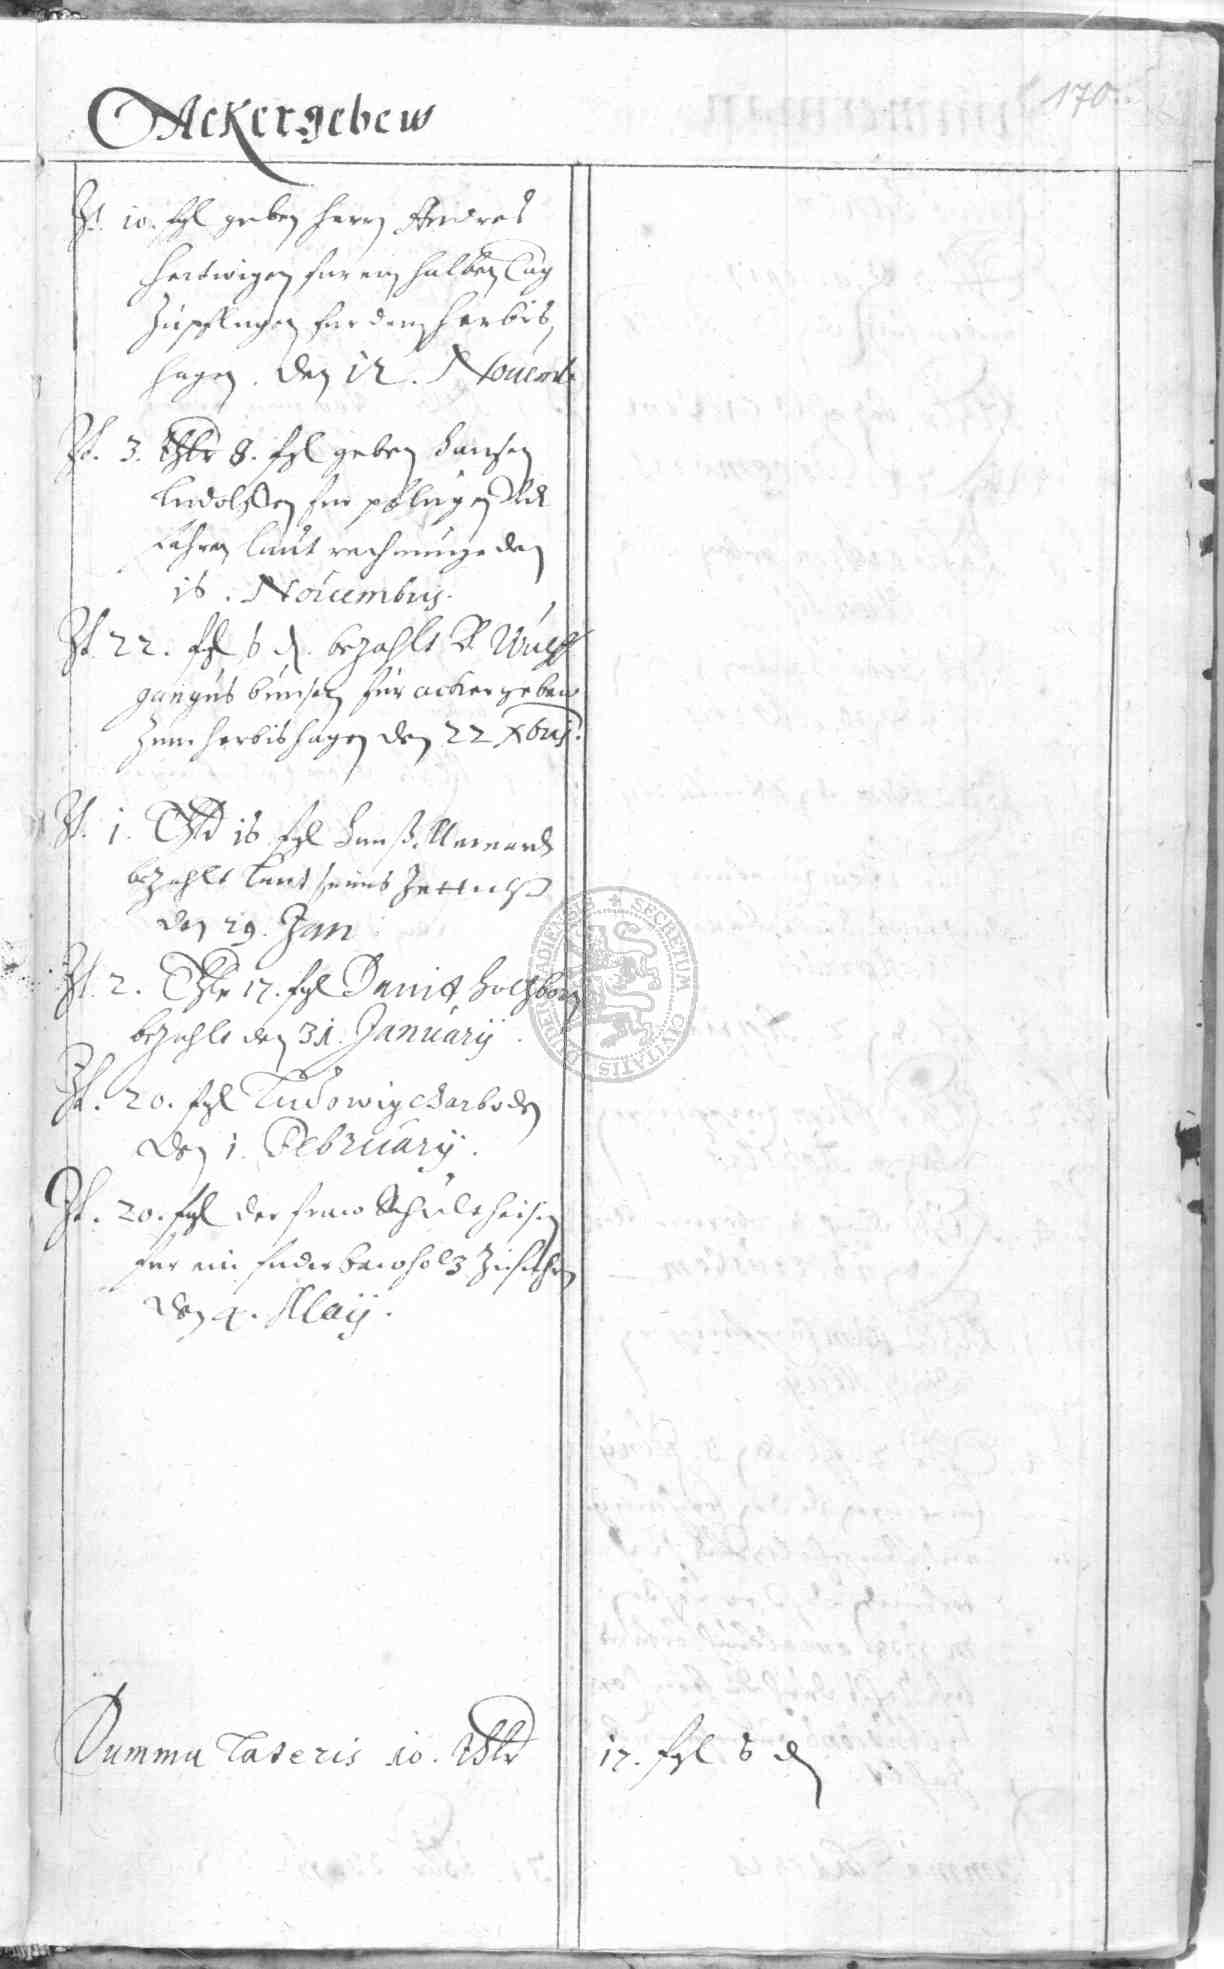 170.
Ackergebew
It. 10. ßgl geben herrn Andres
Hertwigen fur ein halben Tag
zupflugen fur dem Herbis
hagen. den 12. Nouemb
It. 3. Thlr 8. ßgl geben Hansen
Ludolffen fur pflugen vnd
fahren laut rechnunge den
16. Nouembris.
It. 22. ßgl 6 d. bezahlt D Wulff
gangus bunsen für ackergebew
zum herbishagen den 22 Xbris.
It. 1. Thlr 16 ßgl Hanß
bezahlt laut seines Zettuls
den 29. Jan
It. 2. Thlr 17. ßgl Daniel Holtzborn
bezahlt den 31. January.
It. 20. ßgl Ludowig Harboden
den 1. February.
It. 20. ßgl der fraw Schulteisin
fur ein fuder bawholz zufuhren
den 4. May.
Summa Lateris 10. Thlr 17. ßgl 6 d
SECRETUM CIVITATIS